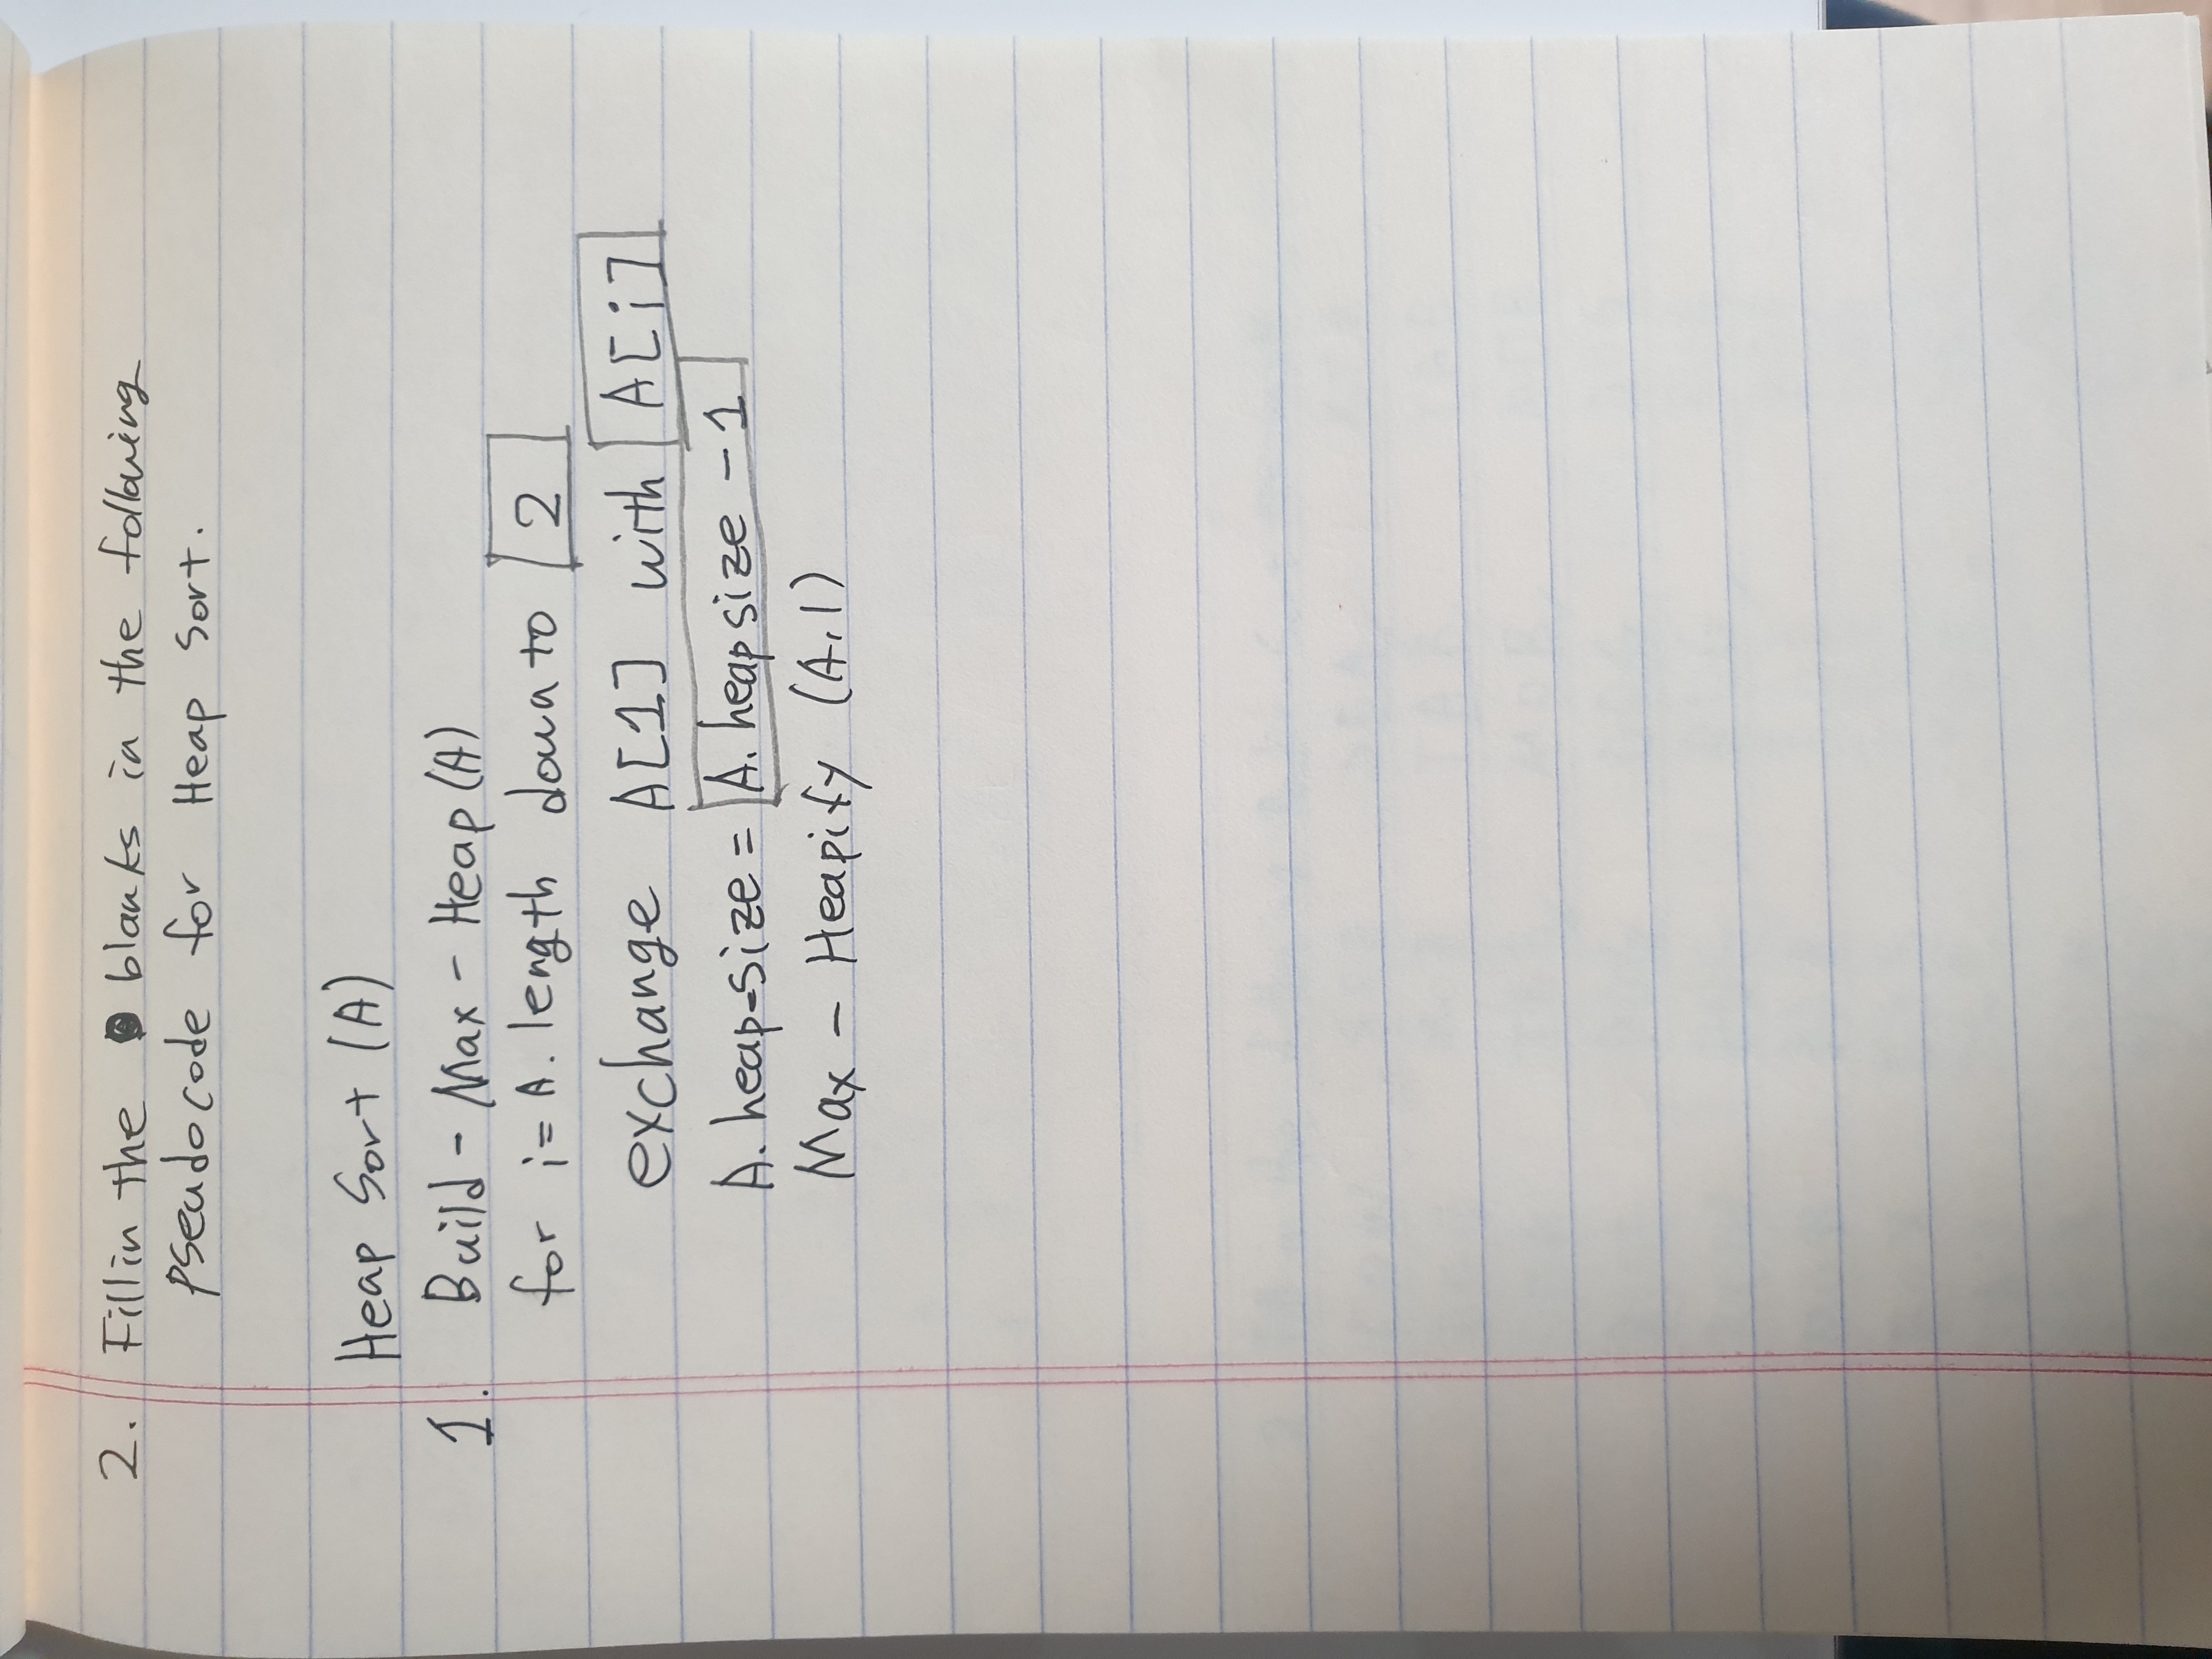 2. Fill in the blanks in the following
pseudocode for Heap Sort.
Heap Sort (A)
1. Build - Max - Heap (A)
for i = A. length down to 2
exchange A[1] with A[i]
A. heap-size = A. heap size - 1
Max - Heapify (A, 1)